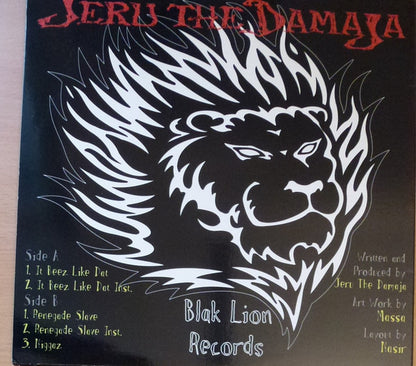 JERU THE DAMAJA
Side A
1. It Beez Like Dat
2. It Beez Like Dat Inst.
Side B
1. Renegade Slave
2. Renegade Slave Inst.
3. Niggaz
Blak Lion
Records
Written and
Produced by
Jeru The Damaja
Art Work by
Massa
Layout by
Nasir